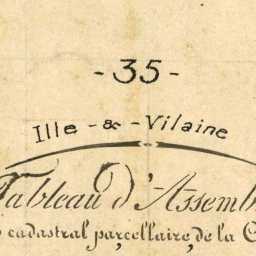 - 35 -
Ille - & - Vilaine
Tableau d'Assemb
cadastral parcellaire de la C